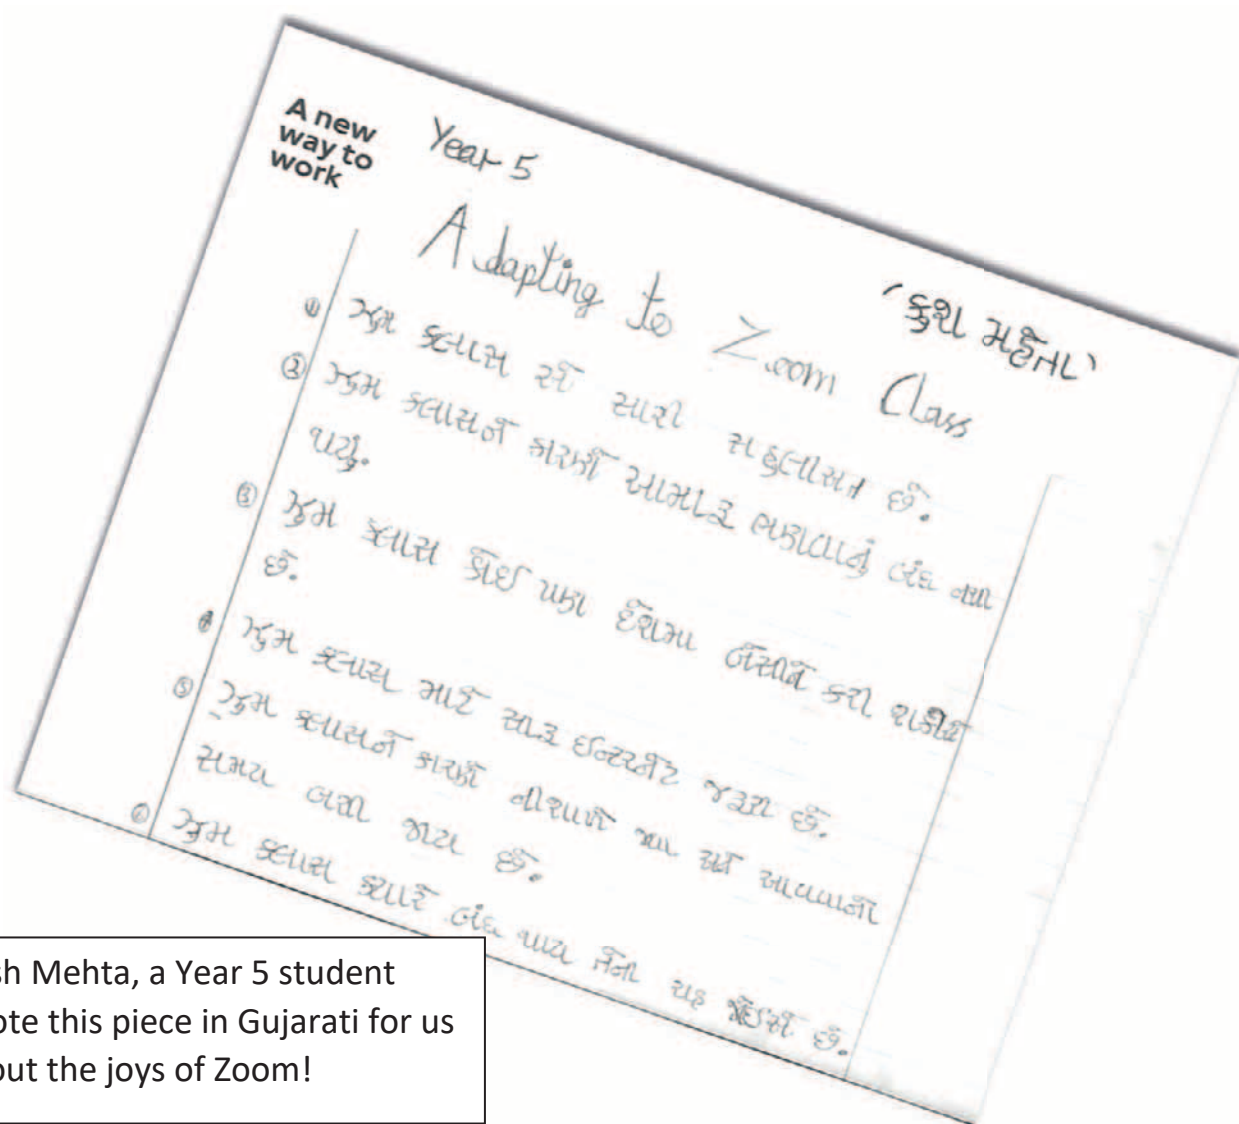 A new
way to
work
Year 5
Adapting to Zoom Class
'કુશ મહેતા'
① ઝુમ ક્લાસ એ સારી સહુલીયત છે.
② ઝુમ ક્લાસને કારણે આમારૂ ભણવાનું બંધ નથી
થયું.
③ ઝુમ ક્લાસ કોઈ પણ દેશમા બેસીને કરી શકીયે
છે.
④ ઝુમ ક્લાસ માટે સારૂ ઈન્ટરનેટ જરૂરી છે.
⑤ ઝુમ ક્લાસને કારણે નીશાળે જા અને આવવાનો
સમય બચી જાય છે.
⑥ ઝુમ ક્લાસ ક્યારે બંધ થાય તેની રાહ જોઈએ છે.
sh Mehta, a Year 5 student
ote this piece in Gujarati for us
out the joys of Zoom!